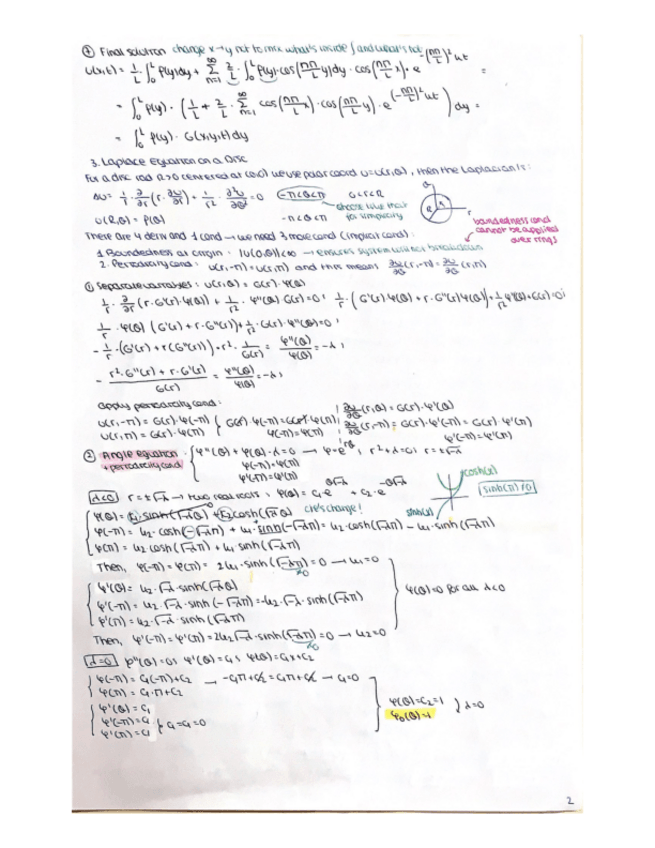 ⑦ Final solution change x→y not to mix what's inside ∫ and what's not
u(x,t) = 1/L · ∫₀ᴸ f(y)dy + Σₙ₌₁^∞ 2/L · ∫₀ᴸ f(y)·cos(nπ/L y)dy · cos(nπ/L x) · e^-(nπ/L)²kt =
= ∫₀ᴸ f(y) · (1/L + 2/L · Σₙ₌₁^∞ cos(nπ/L x) · cos(nπ/L y) · e^(-nπ/L)²kt) dy =
= ∫₀ᴸ f(y) · G(x,y,t)dy
3. Laplace Equation on a Disc
For a disc rad R>0 centered at (0,0) we use polar coord u=u(r,θ), then the Laplacian is:
Δu = 1/r · ∂/∂r (r · ∂u/∂r) + 1/r² · ∂²u/∂θ² = 0 -π<θ<π 0<r<R
choose like that for simplicity
u(R,θ) = f(θ) -π<θ<π
boundedness cond cannot be applied over rings
There are 4 deriv and 1 cond → we need 3 more cond (implicit cond):
1. Boundedness at origin: |u(0,θ)|<∞ → ensures system will not break down
2. Periodicity cond: u(r,-π)=u(r,π) and thus means ∂u/∂θ (r,-π) = ∂u/∂θ (r,π)
① Separate variables: u(r,θ) = G(r)·φ(θ)
1/r · ∂/∂r (r·G'(r)·φ(θ)) + 1/r² · φ''(θ)·G(r)=0; 1/r · (G'(r)φ(θ) + r·G''(r)φ(θ)) + 1/r² φ''(θ)·G(r)=0;
1/r · φ(θ) (G'(r) + r·G''(r)) + 1/r² · G(r)·φ''(θ)=0;
- 1/r · (G'(r) + r(G''(r))) · r² · 1/G(r) = φ''(θ)/φ(θ) = -λ;
- r²·G''(r) + r·G'(r) / G(r) = φ''(θ)/φ(θ) = -λ;
Apply periodicity cond:
u(r,-π) = G(r)·φ(-π) G(r)·φ(-π)=G(r)·φ(π) ∂u/∂θ (r,θ) = G(r)·φ'(θ)
u(r,π) = G(r)·φ(π) φ(-π)=φ(π) ∂u/∂θ (r,-π) = G(r)·φ'(-π) = G(r)·φ'(π)
φ'(-π)=φ'(π)
② Angle equation + periodicity cond { φ''(θ) + φ(θ)·λ=0 → φ=e^rθ; r²+λ=0; r=±√-λ
φ(-π)=φ(π)
φ'(-π)=φ'(π)
λ<0 r=±√-λ → two real roots: φ(θ) = c₁·e^θ√-λ + c₂·e^-θ√-λ
cosh(x)
sinh(x)
sinh(π)≠0
φ(θ) = k₁·sinh(√-λθ) + k₂cosh(√-λθ) c's change!
φ(-π) = k₂·cosh(-√-λπ) + k₁·sinh(-√-λπ) = k₂·cosh(√-λπ) - k₁·sinh(√-λπ)
φ(π) = k₂cosh(√-λπ) + k₁·sinh(√-λπ)
Then, φ(-π) = φ(π) = 2k₁·sinh(√-λπ) = 0 → k₁=0
≠0
φ'(θ) = k₂·√-λ·sinh(√-λθ)
φ'(-π) = k₂·√-λ·sinh(-√-λπ) = -k₂·√-λ·sinh(√-λπ)
φ(θ)=0 for all λ<0
φ'(π) = k₂·√-λ·sinh(√-λπ)
Then, φ'(-π) = φ'(π) = 2k₂√-λ·sinh(√-λπ)=0 → k₂=0
≠0
λ=0 φ''(θ)=0; φ'(θ)=c₁; φ(θ)=c₁x+c₂
φ(-π) = c₁(-π)+c₂ → -c₁π+c₂=c₁π+c₂ → c₁=0
φ(π) = c₁·π+c₂
φ'(θ) = c₁
φ(θ)=c₂=1
φ₀(θ)=1
λ=0
φ'(-π)=c₁ } c₁=c₁=0
φ'(π)=c₁
2